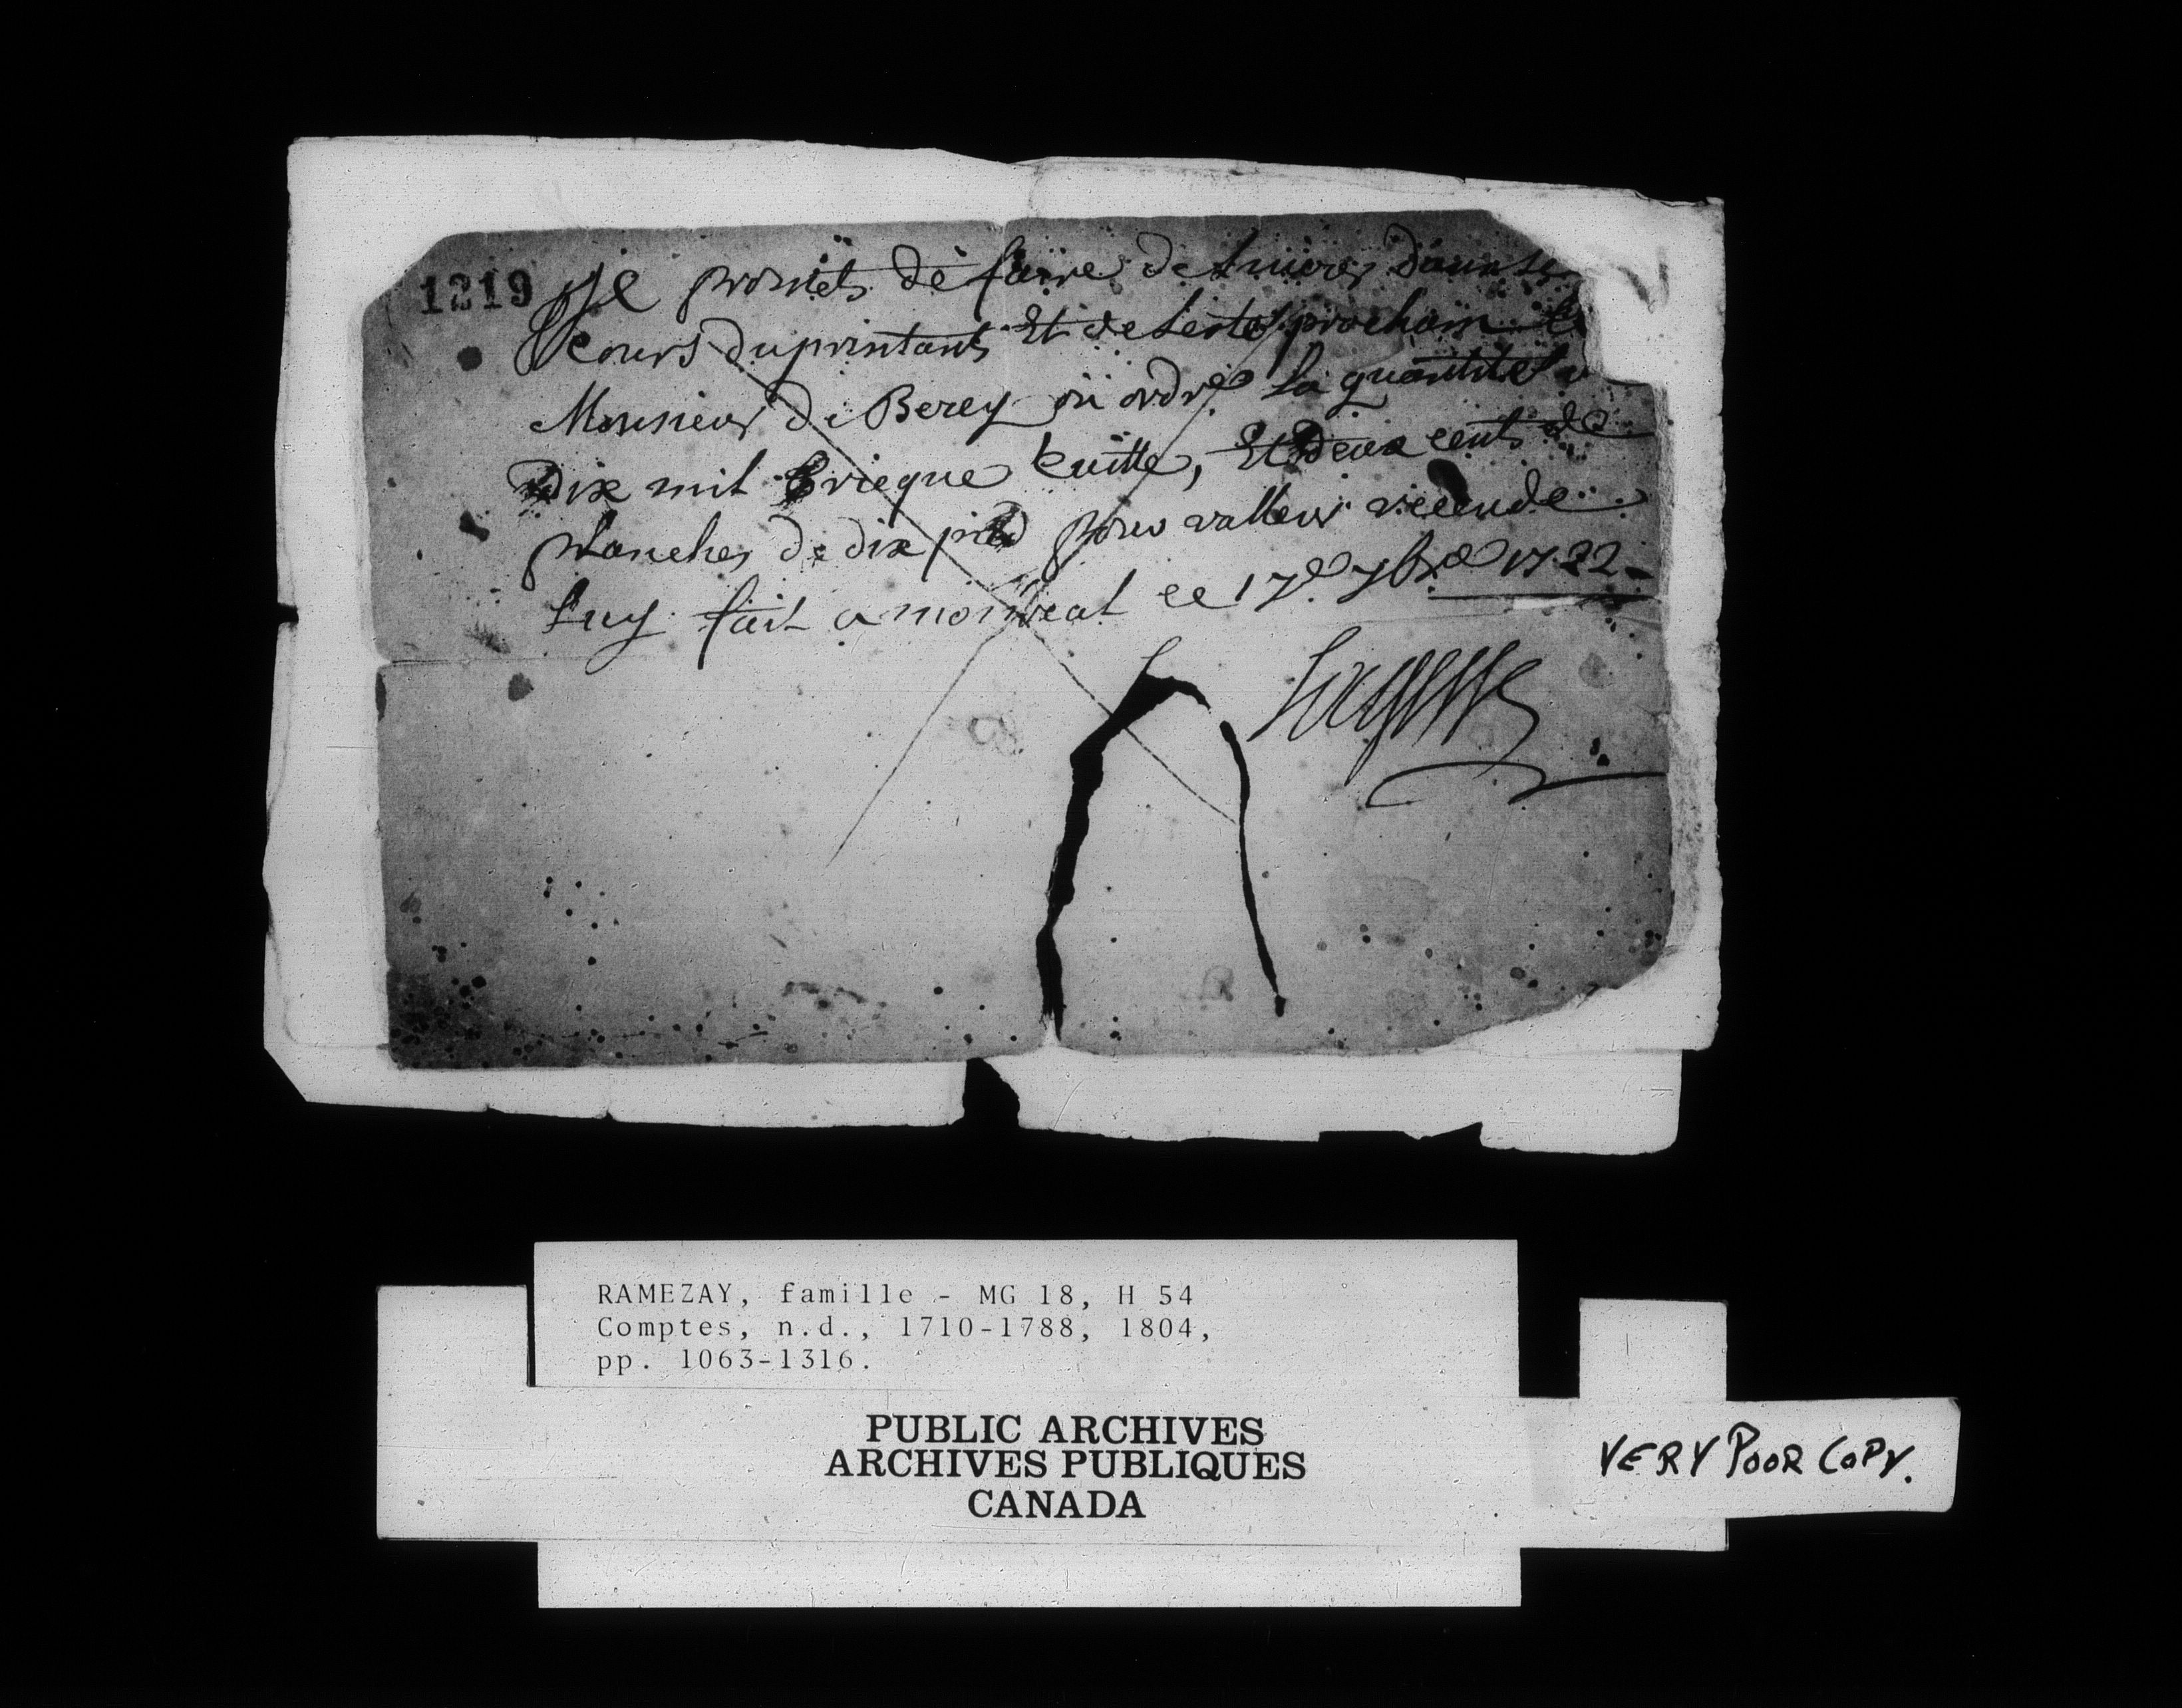 1219
Je promets de faire delivrer dans le
cours du printans Et de Lesté prochain
Monsieur de Berey ou ordre La quantité
Dix mil Brieque Cuitte, Et Deux cents de
planches de dix pied pour valleur receude
Luy fait a monreal ce 17.e 7bre 1722
RAMEZAY, famille - MG 18, H 54
Comptes, n.d., 1710-1788, 1804,
pp. 1063-1316.
PUBLIC ARCHIVES
ARCHIVES PUBLIQUES
CANADA
VERY POOR COPY.